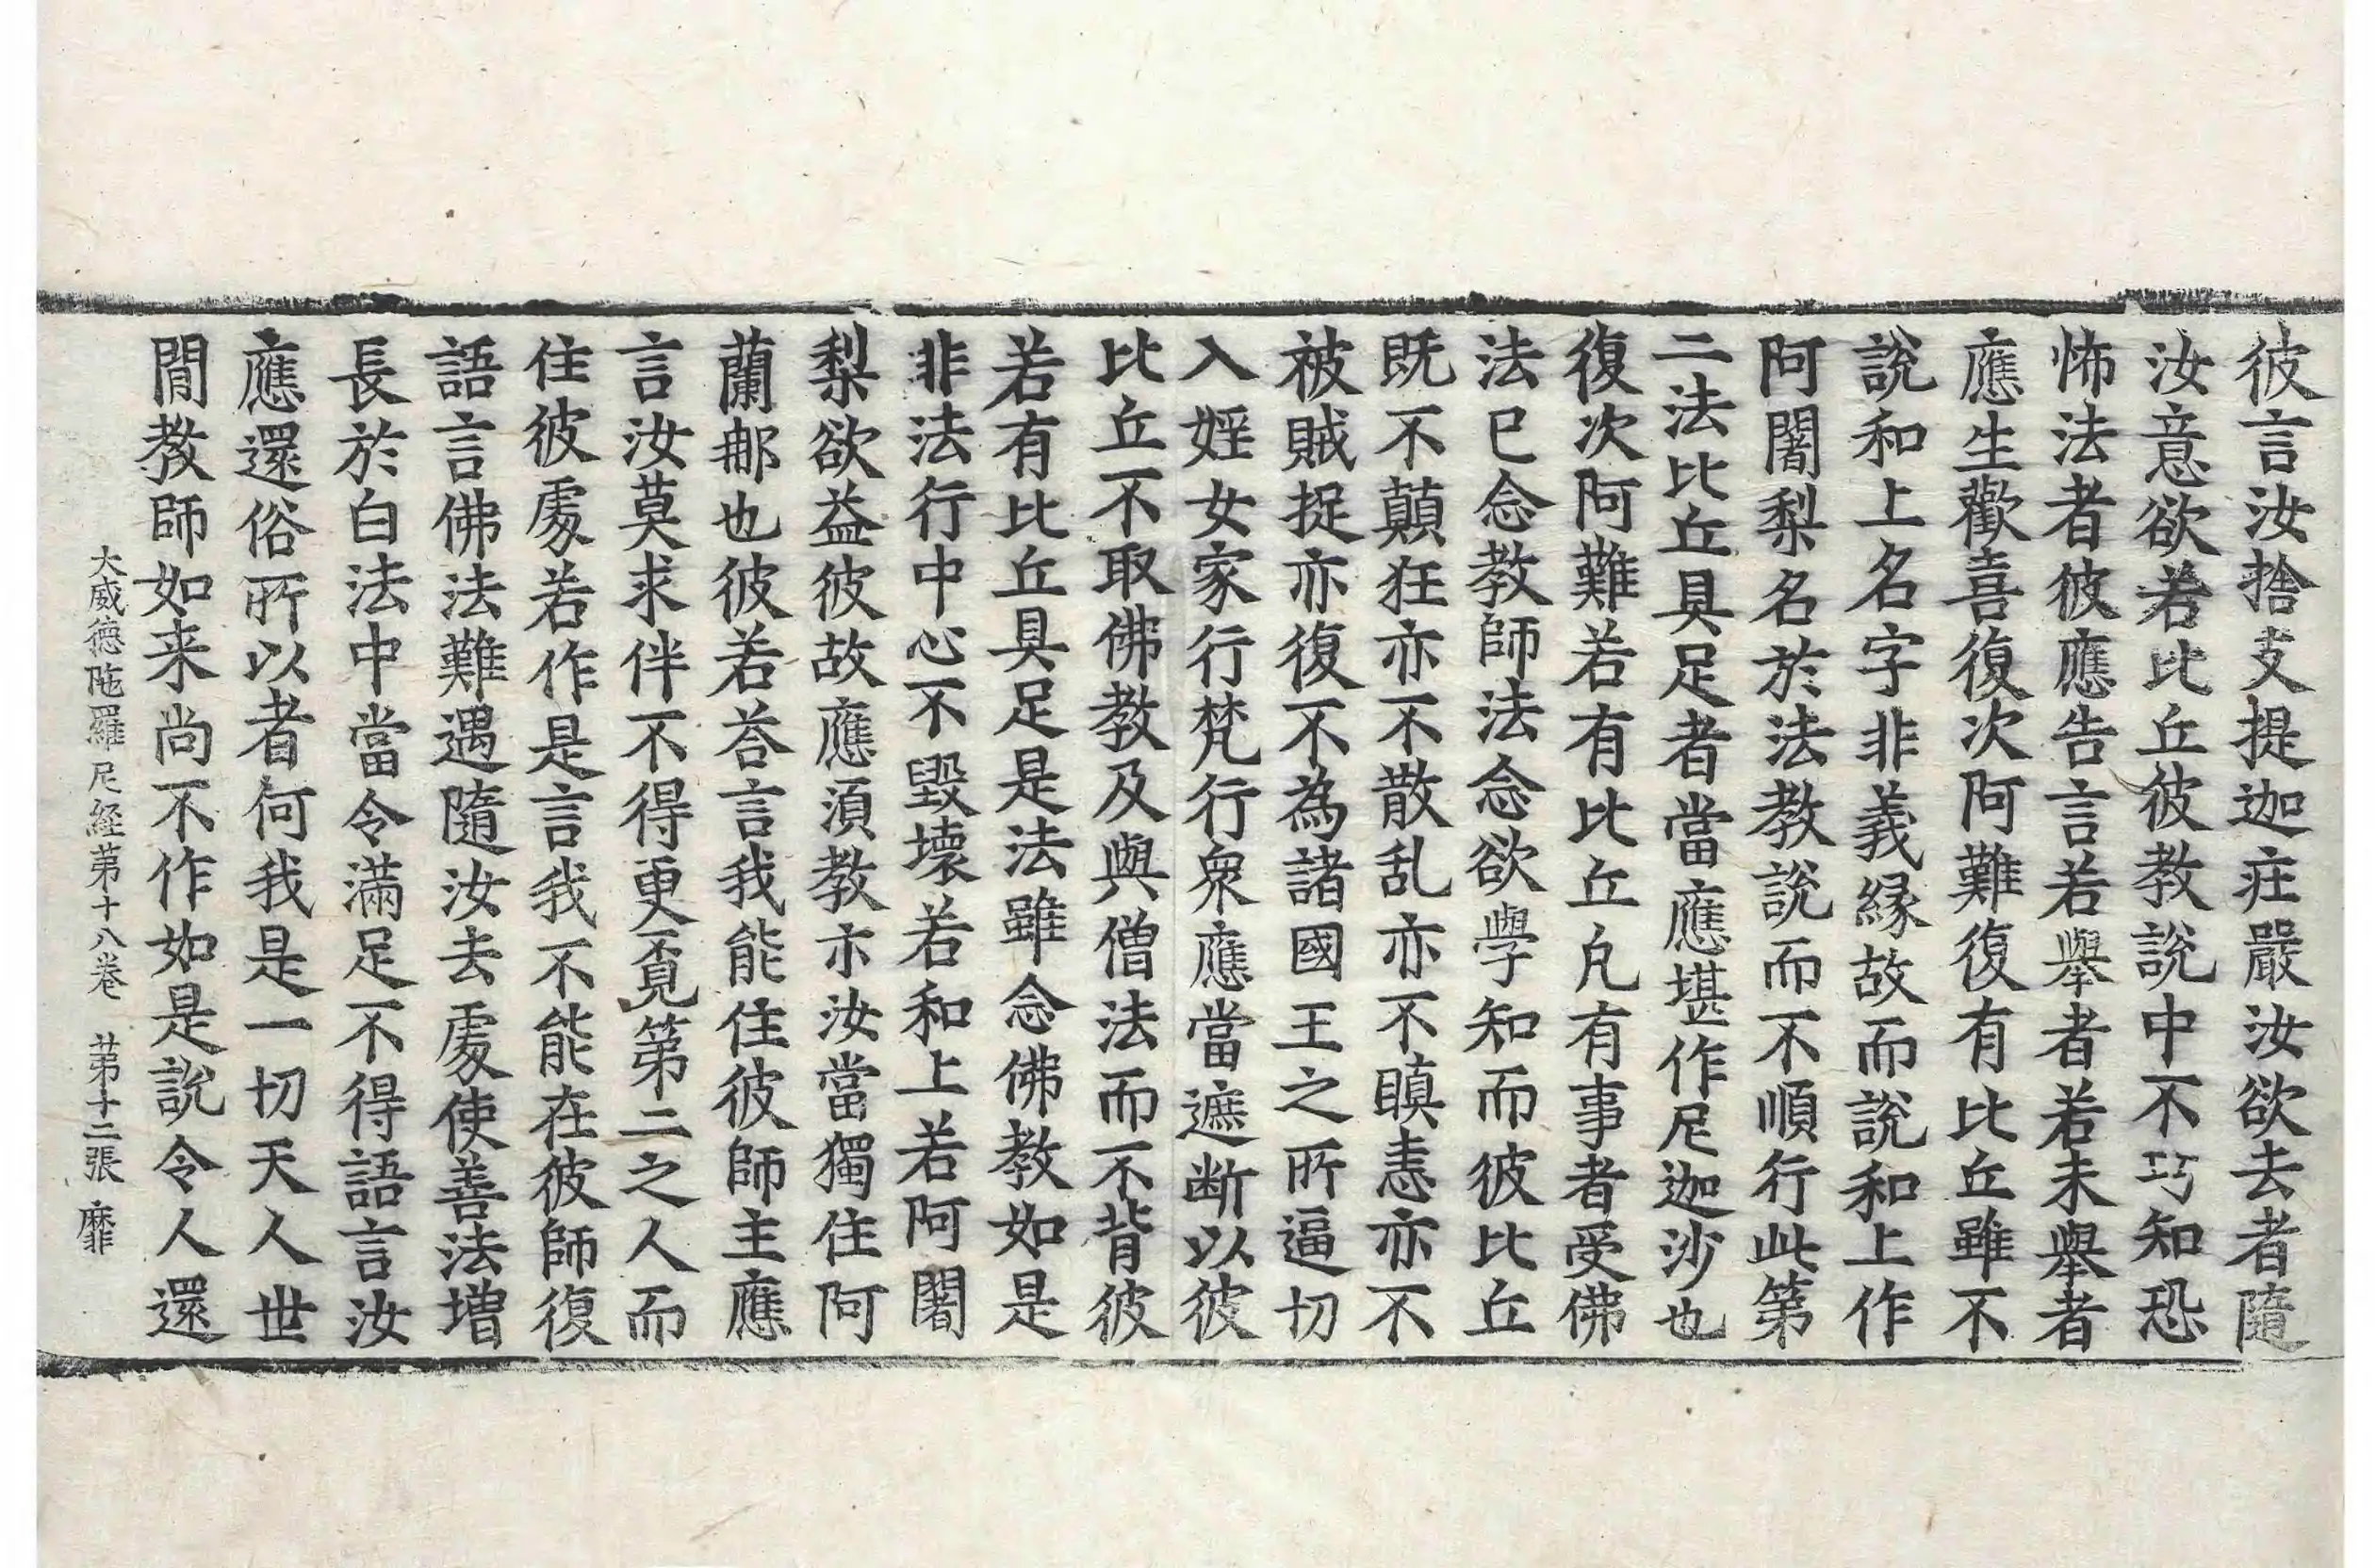 彼言汝捨支提迦疰嚴汝欲去者隨
汝意欲若比丘彼教說中不巧知恐
怖法者彼應告言若舉者若未舉者
應生歡喜復次阿難復有比丘雖不
說和上名字非義緣故而說和上作
阿闍梨名於法教說而不順行此第
二法比丘具足者當應堪作尼迦沙也
復次阿難若有比丘凡有事者受佛
法已念教師法念欲學知而彼比丘
既不顛狂亦不散乱亦不瞋恚亦不
被賊捉亦復不為諸國王之所逼切
入婬女家行梵行衆應當遮断以彼
比丘不取佛教及與僧法而不背彼
若有比丘具足是法雖念佛教如是
非法行中心不毀壞若和上若阿闍
梨欲益彼故應須教示汝當獨住阿
蘭那也彼若荅言我能住彼師主應
言汝莫求伴不得更覓第二之人而
住彼處若作是言我不能在彼師復
語言佛法難遇隨汝去處使善法增
長於白法中當令滿足不得語言汝
應還俗所以者何我是一切天人世
間教師如来尚不作如是說令人還
大威德陁羅尼経第十八卷　第十二張　靡